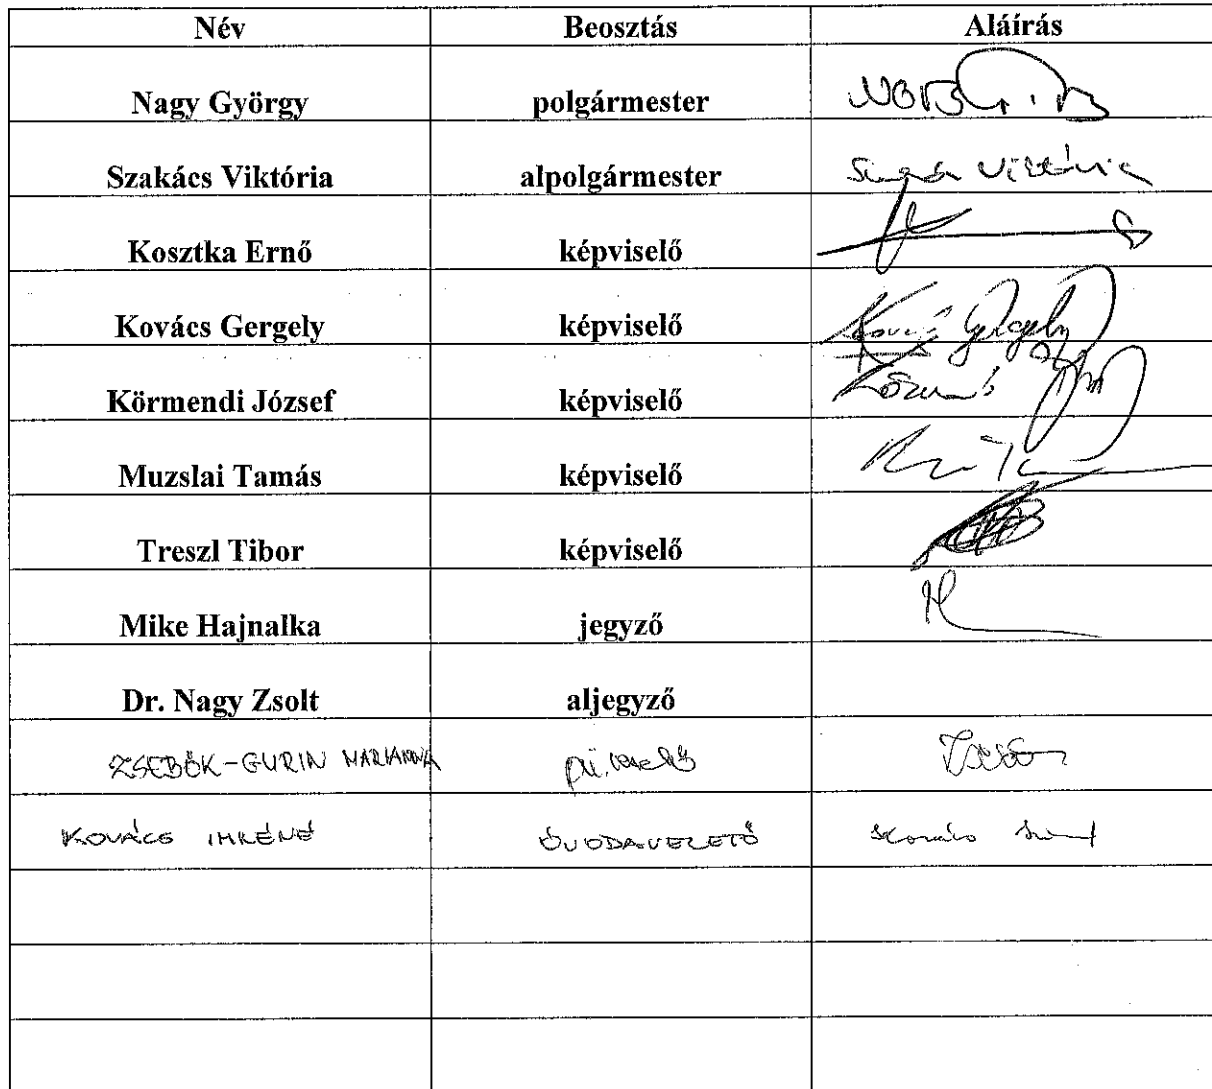 Név Beosztás Aláírás
Nagy György polgármester
Szakács Viktória alpolgármester
Kosztka Ernő képviselő
Kovács Gergely képviselő Kovács Gergely
Körmendi József képviselő
Muzslai Tamás képviselő
Treszl Tibor képviselő
Mike Hajnalka jegyző
Dr. Nagy Zsolt aljegyző
ZSEBŐK-GURIN MARIANNA
KOVÁCS IMRÉNÉ ÓVODAVEZETŐ